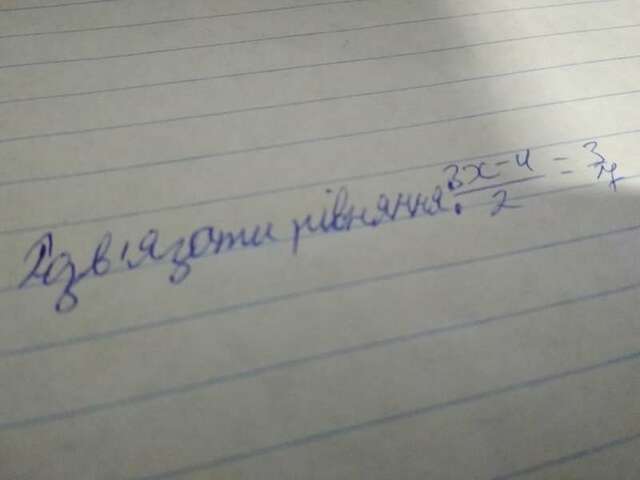 Розв'язати рівняння: 3x-4/2 = 3/7